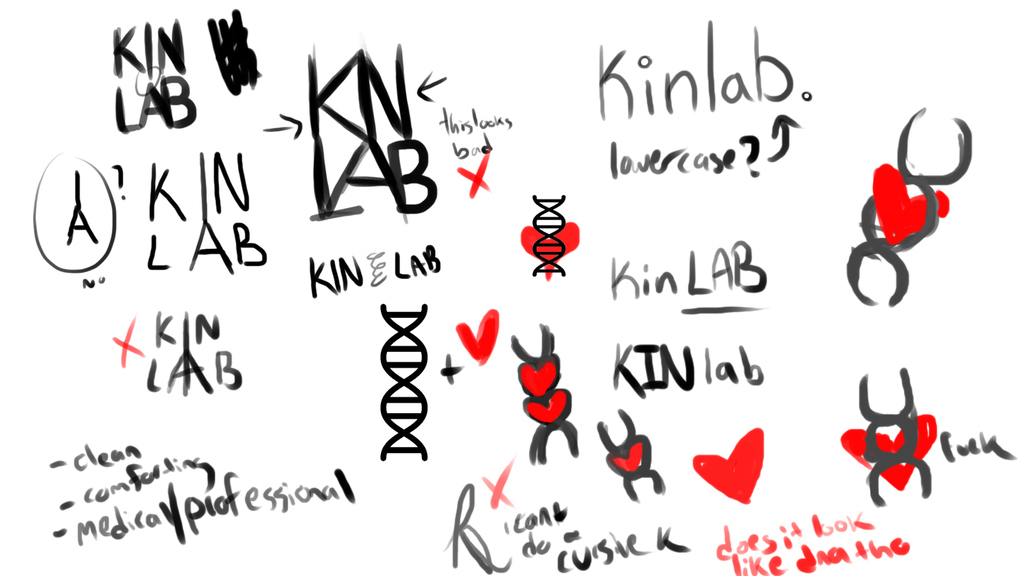 KIN
LAB
KIN
LAB
this looks
bad
Kinlab.
lowercase?
A
?
no
KIN
LAB
KIN LAB
KinLAB
KIN
LAB
+
KINlab
- clean
- comforting
- medical/professional
fuck
K
i cant
do a
cursive K
does it look
like dna tho